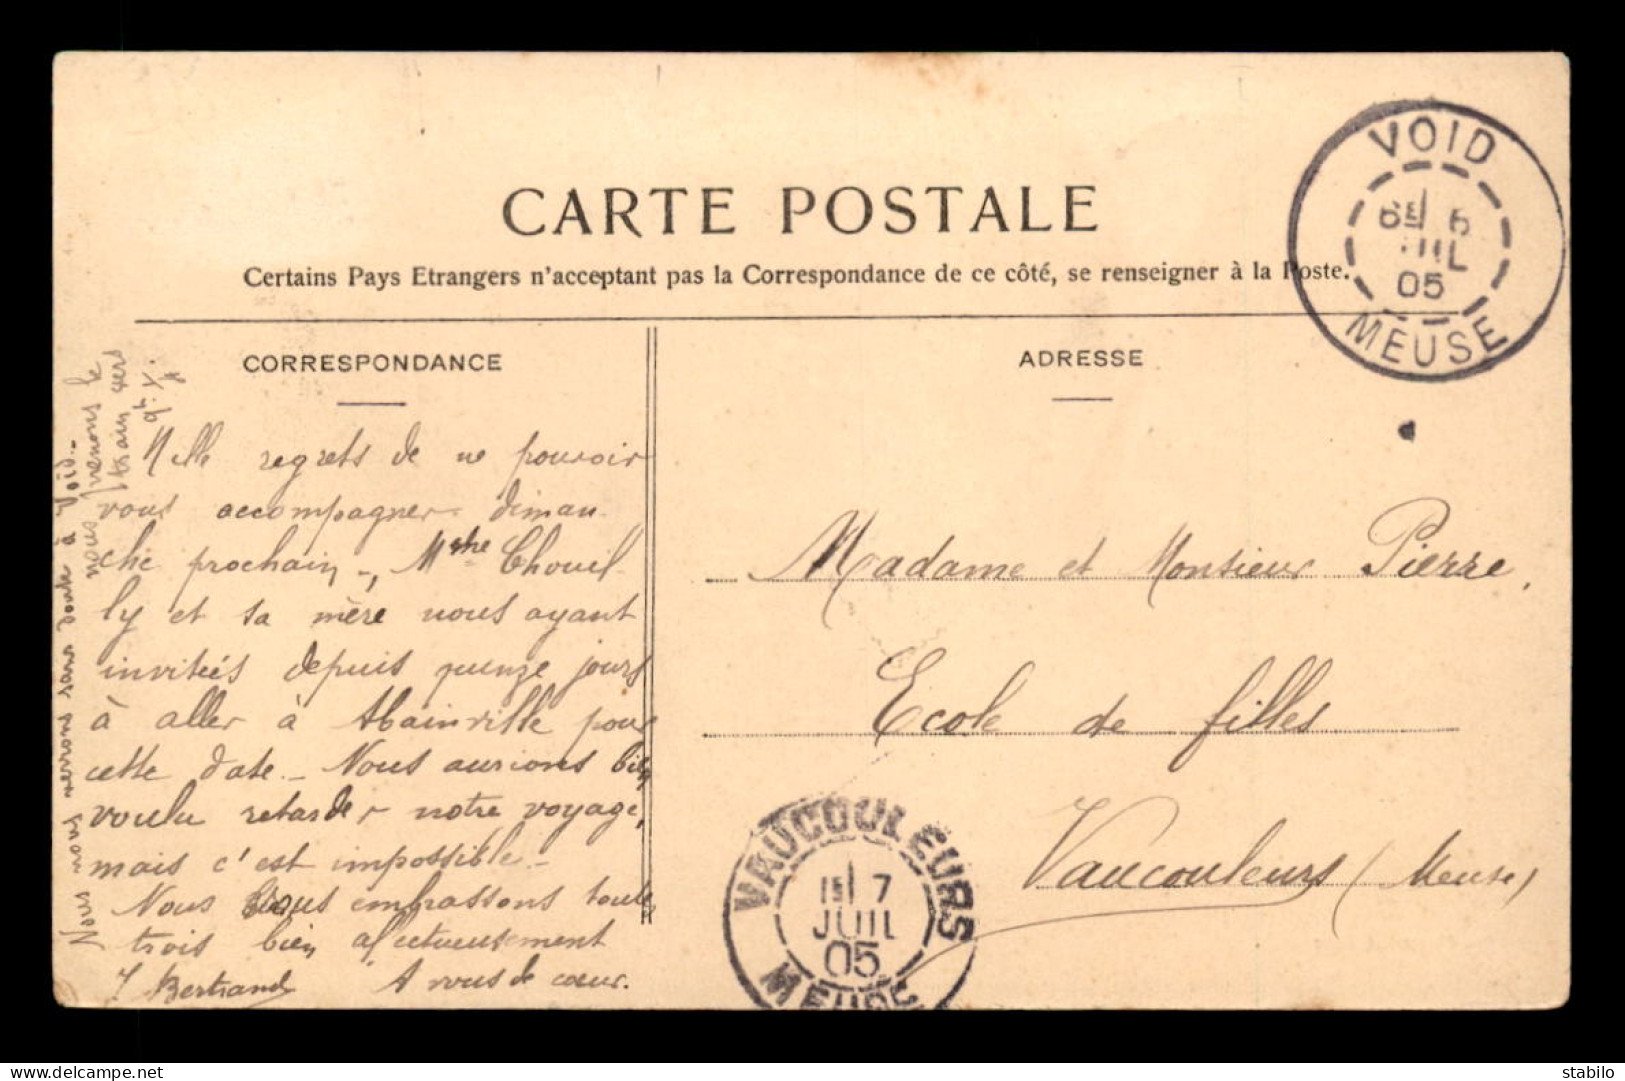 CARTE POSTALE
Certains Pays Etrangers n'acceptant pas la Correspondance de ce côté, se renseigner à la Poste.
VOID
6E 5
JUIL
05
MEUSE
CORRESPONDANCE
Mille regrets de ne pouvoir
vous accompagner diman
che prochain, Chouil
ly et sa mère nous ayant
invitées depuis quinze jours
à aller à Abainville pour
cette date. _ Nous aurions bien
voulu retarder notre voyage,
mais c'est impossible _
Nous vous embrassons toutes
trois bien affectueusement
Bertrand A vous de cœur.
Nous vous verrons sans doute à Void. _
nous prenons le
train vers
ADRESSE
Madame et Monsieur Pierre,
Ecole de filles
Vaucouleurs (Meuse)
VAUCOULEURS
1E 7
JUIL
05
MEUSE
delcampe.net
stabilo